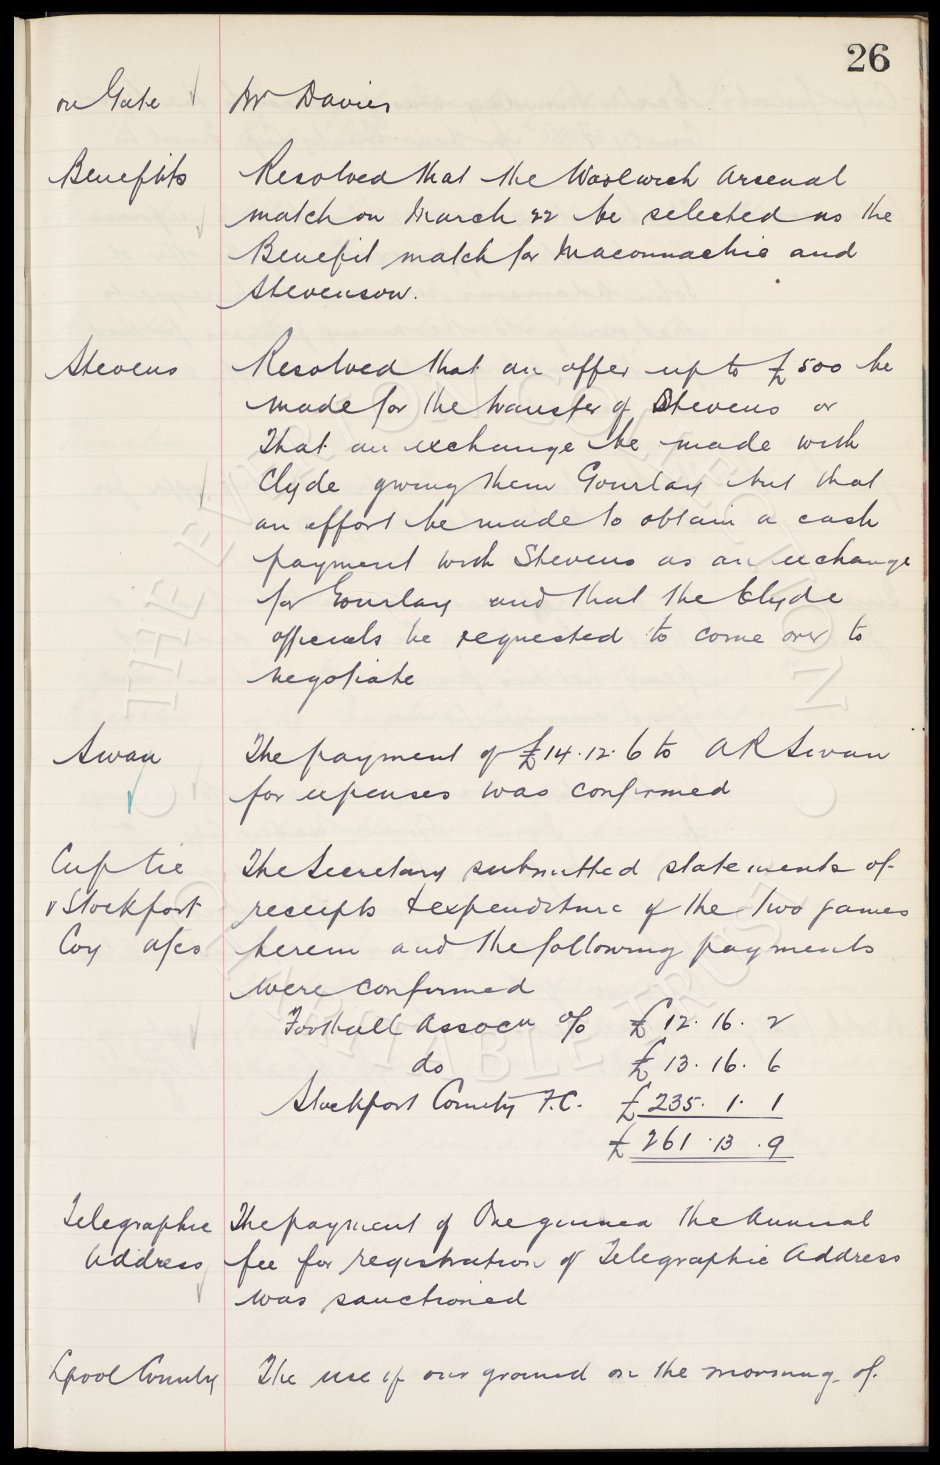 26
on Gate Mr Davies
Benefits Resolved that the Woolwich Arsenal
match on March 22 be selected as the
Benefit match for Maconnachie and
Stevenson.
Stevens Resolved that an offer up to £500 be
made for the transfer of Stevens or
That an exchange be made with
Clyde giving them Gourlay but that
an effort be made to obtain a cash
payment with Stevens as an exchange
for Gourlay and that the Clyde
officials be requested to come over to
negotiate
Swan The payment of £14.12.6 to A R Swan
for expenses was confirmed
Cup tie The Secretary submitted statements of
v Stockport receipts & expenditure of the two games
Coy a/cs herein and the following payments
were confirmed
Football Assocn % £12.16.2
do £13.16.6
Stockport County F.C. £235.1.1
£261.13.9
Telegraphic The payment of One guinea the Annual
Address fee for registration of Telegraphic Address
was sanctioned
Lpool County The use of our ground on the morning of
© THE EVERTON COLLECTION CHARITABLE TRUST